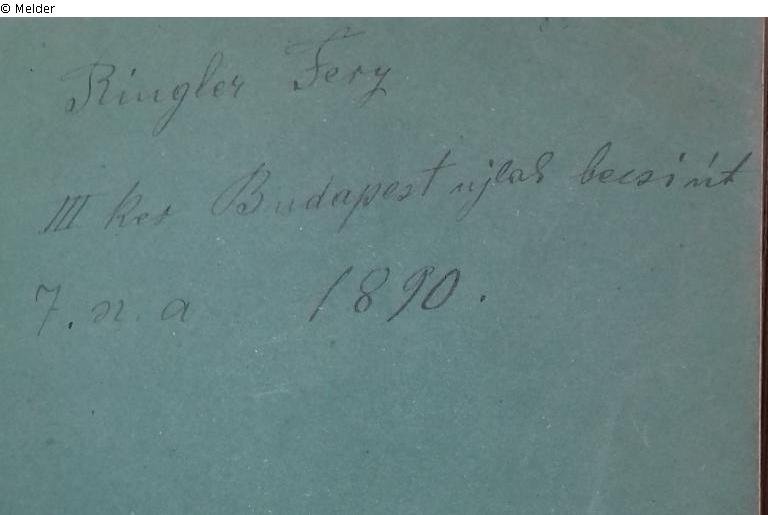 © Melder
Ringler Fery
III ker Budapest ujlak becsi út
7. sz. a 1890.